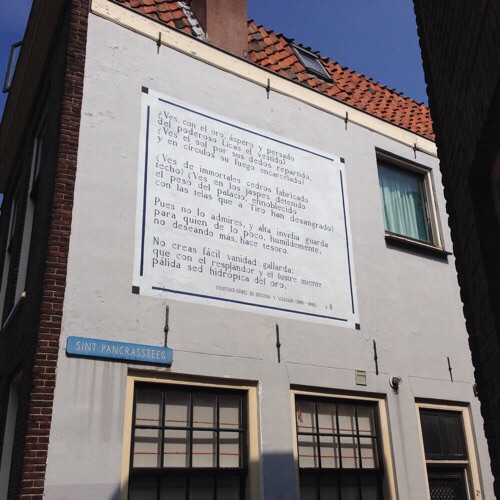 ¿Ves, con el oro, áspero y pesado
del poderoso Licas el vestido?
¿Ves el sol por sus dedos repartido,
y en círculos su fuego encarcelado?
¿Ves de inmortales cedros fabricado
techo? ¿Ves en los jaspes detenido
el peso del palacio, ennoblecido
con las telas que a Tiro han desangrado?
Pues no lo admires, y alta invidia guarda
para quien de lo poco, humildemente,
no deseando más, hace tesoro.
No creas fácil vanidad gallarda:
que con el resplandor y el lustre miente
pálida sed hidrópica del oro.
FRANCISCO GÓMEZ DE QUEVEDO Y VILLEGAS (1580 - 1645)
SINT PANCRASSTEEG